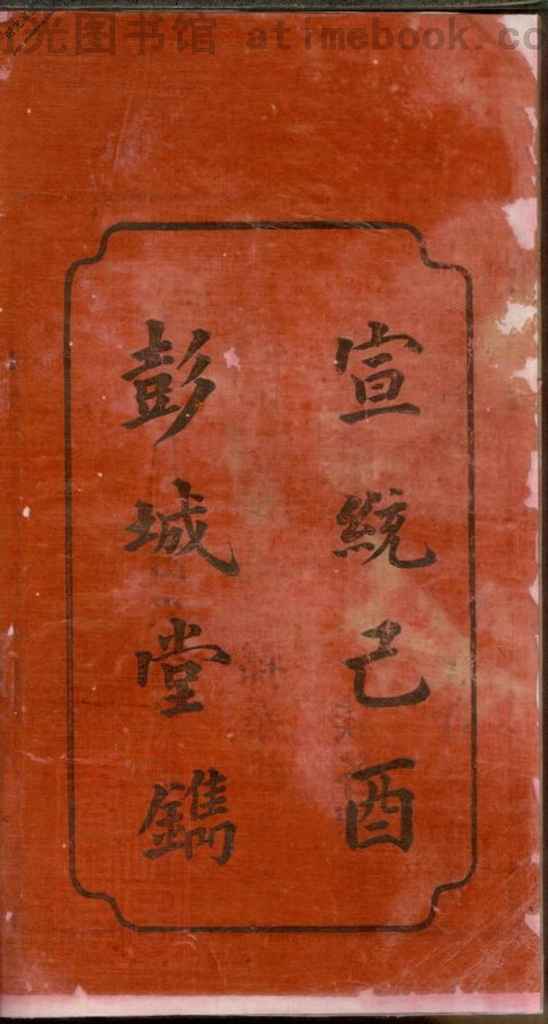 光图书馆 atimebook.co
宣統己酉
彭城堂鐫